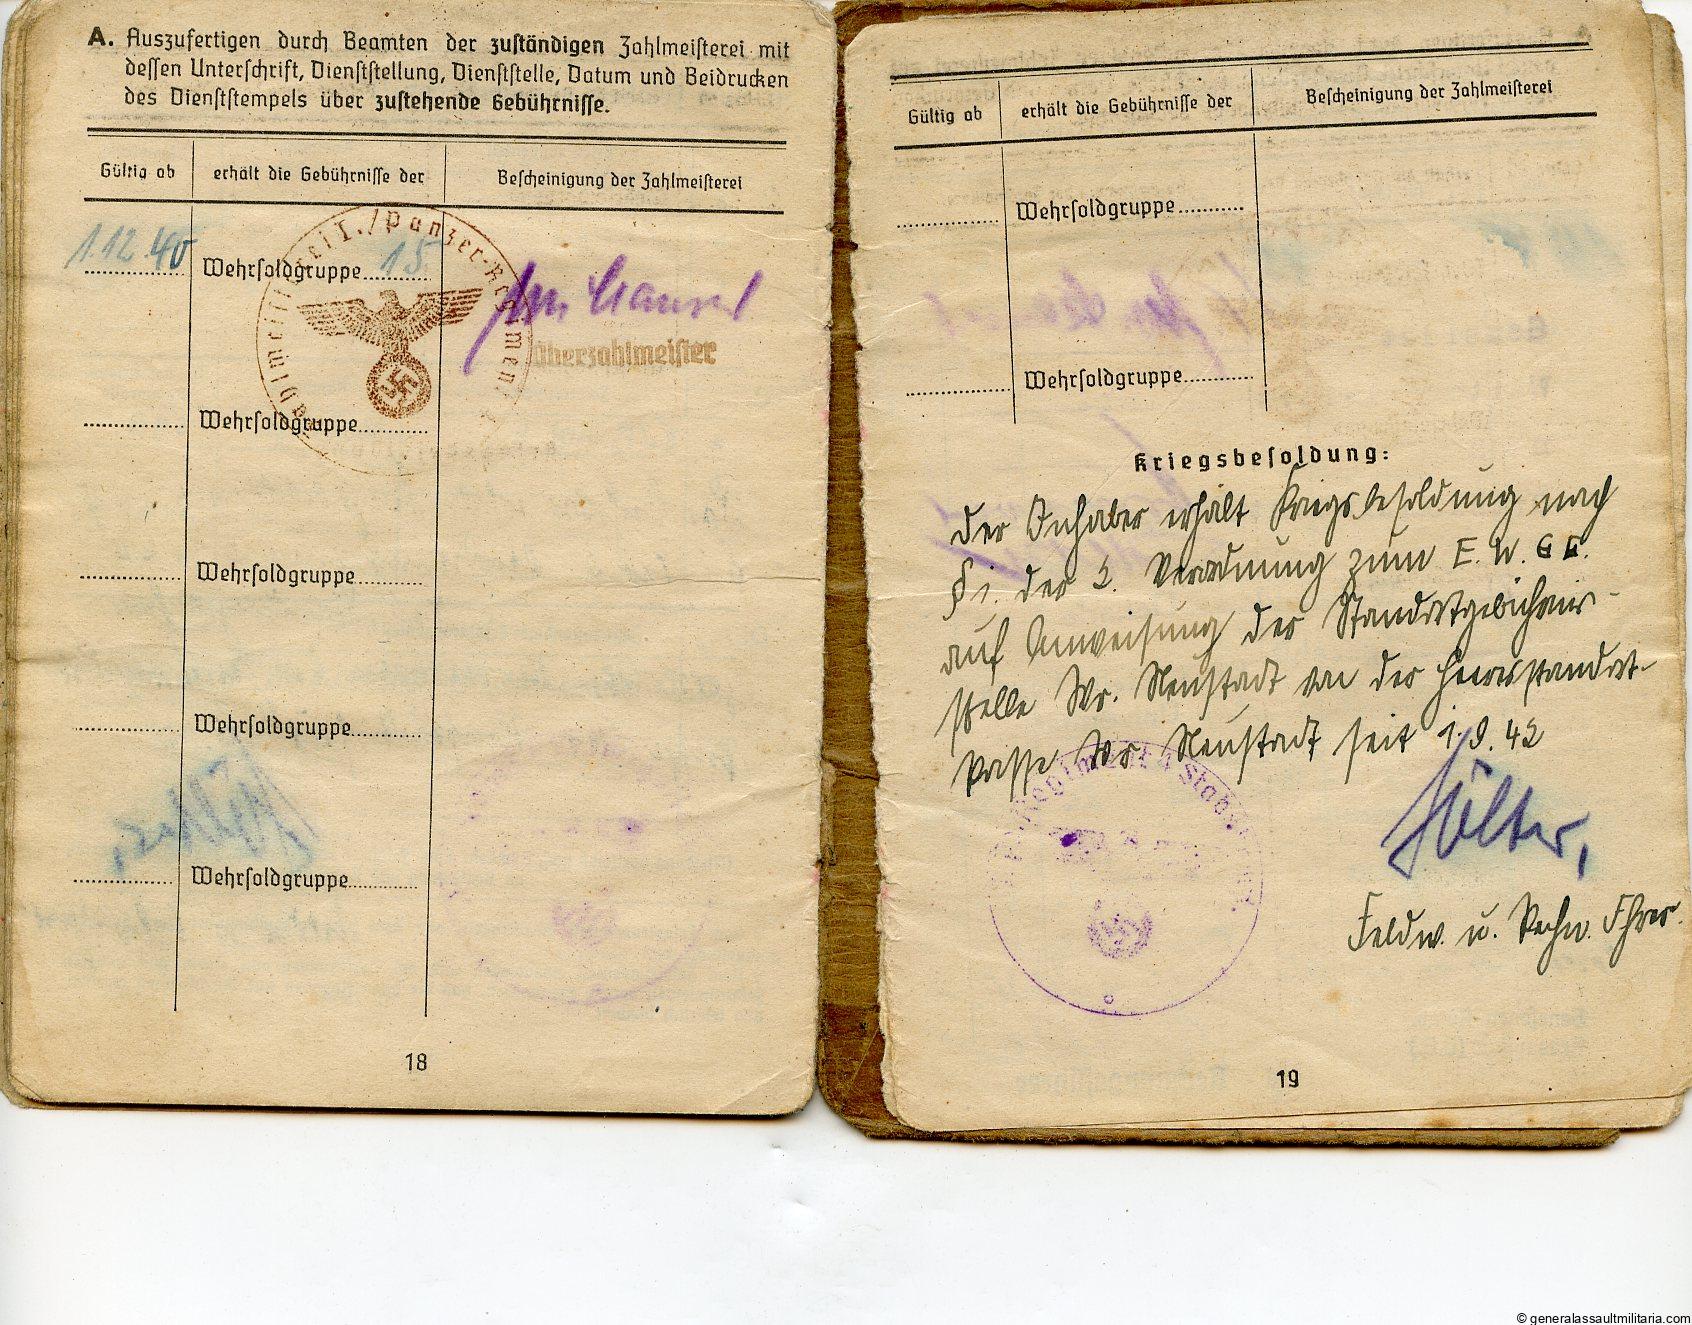 A. Auszufertigen durch Beamten der zuständigen Zahlmeisterei mit
dessen Unterschrift, Dienststellung, Dienststelle, Datum und Beidrucken
des Dienststempels über zustehende Gebührnisse.
Gültig ab erhält die Gebührnisse der Bescheinigung der Zahlmeisterei
1.12.40 Wehrsoldgruppe 15
Zahlmeisterei I./Panzer-Regiment
Oberzahlmeister
Wehrsoldgruppe
Wehrsoldgruppe
Wehrsoldgruppe
Wehrsoldgruppe
18
Gültig ab erhält die Gebührnisse der Bescheinigung der Zahlmeisterei
Wehrsoldgruppe
Wehrsoldgruppe
Kriegsbesoldung:
Der Inhaber erhält Kriegsbesoldung nach
§ 1. der 2. Verordnung zum E.W.G.G.
auf Anweisung der Standortgebührnis-
stelle Wr. Neustadt von der Heeresstandort-
kasse Wr. Neustadt seit 1.9.42
Regiment 4 Stabs
Hölter,
Feldw. u. Rechn. Fhrer.
19
© generalassaultmilitaria.com